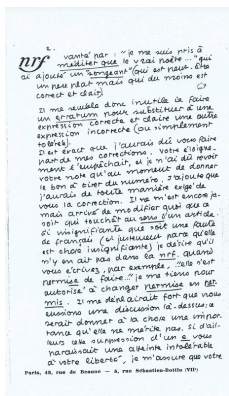 2.
nrf vanté par : "je me suis pris à
méditer que le vrai poète..." qui
ai ajouté un "songeant" (qui est peut-être
un peu plat mais qui du moins est
correct et clair).
Il me semble donc inutile de faire
un erratum pour substituer à une
expression correcte et claire une autre
expression incorrecte (ou simplement
tolérée).
Il est exact que j'aurais dû vous faire
part de mes corrections. Votre éloigne-
ment l'empêchait, et je n'ai dû revoir
votre note qu'au moment de donner
le bon à tirer du numéro. J'ajoute que
j'aurais de toute manière exigé de
vous la correction. Il ne m'est encore ja-
mais arrivé de modifier quoi que ce
soit qui touchât au sens d'un article.
Si insignifiante que soit une faute
de français (et justement parce qu'elle
est chose insignifiante) je désire qu'il
n'y en ait pas dans la nrf. Quand
vous écrivez, par exemple, "elle s'est
permise de faire..." je me tiens pour
autorisé à changer permise en per-
mis. Il me déplairait fort que nous
eussions une discussion là-dessus: ce
serait donner à la chose une impor-
tance qu'elle ne mérite pas. Si d'ail-
leurs cette suppression d'un e vous
paraissait une atteinte intolérable
à votre liberté, je m'assure que votre
Paris, 43, rue de Beaune — 5, rue Sébastien-Bottin (VIIᵉ)